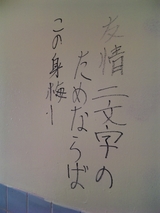 友情二文字の
ためならば
この身悔い